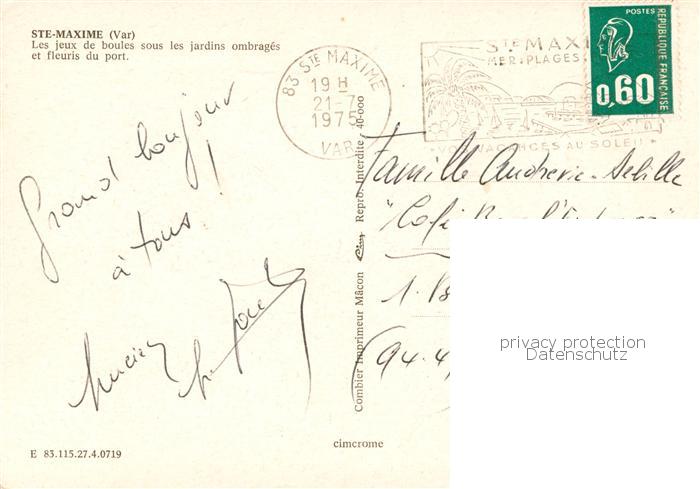 STE-MAXIME (Var)
Les jeux de boules sous les jardins ombragés
et fleuris du port.
83 STE MAXIME
19 H
21-7
1975
VAR
STE MAXI
MER-PLAGES
VACANCES AU SOLEIL
POSTES
REPUBLIQUE FRANÇAISE
0,60
Grand bonjour
à tous !
Lucien
Famille
"Café
1.
(94.4
Combier Imprimeur Mâcon Cim Repro. Interdite 40-000
privacy protection
Datenschutz
cimcrome
E 83.115.27.4.0719